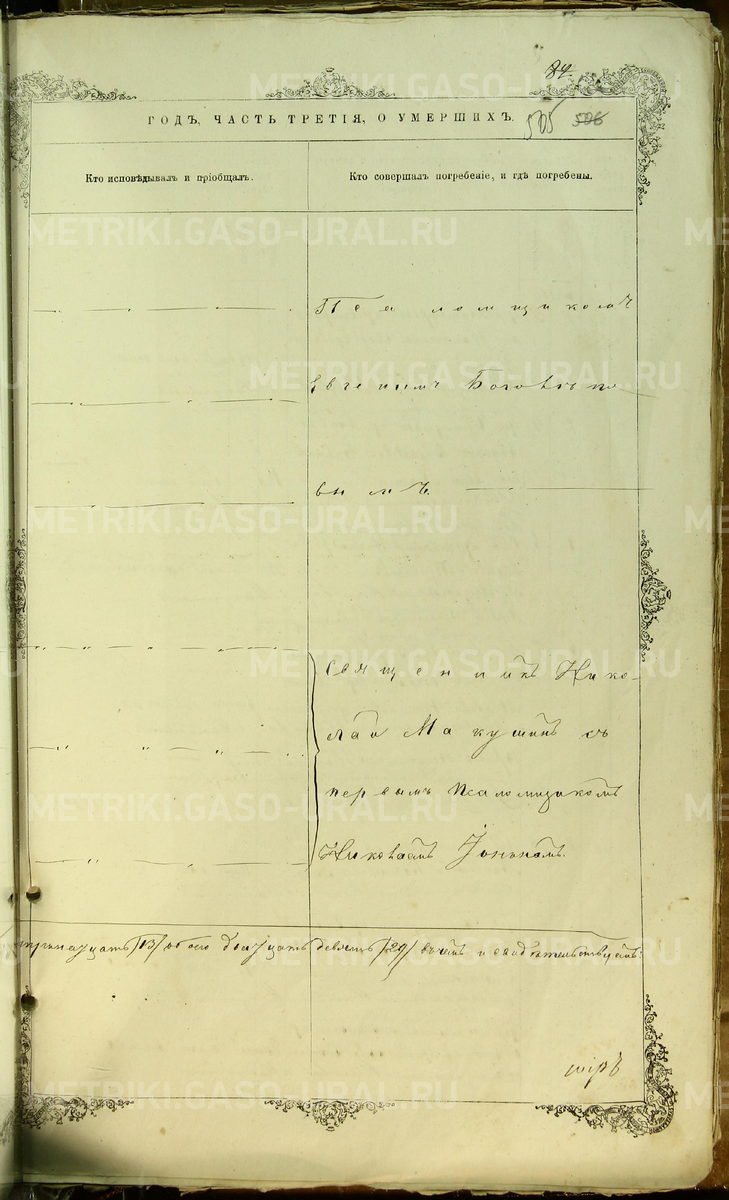 84.
ГОДЪ, ЧАСТЬ ТРЕТІЯ, О УМЕРШИХЪ.
505 506
Кто исповѣдывалъ и пріобщалъ.
Кто совершалъ погребеніе, и гдѣ погребены.
Псаломщикомъ
Евгеніемъ
вымъ.
Священникъ Нико-
лай Макушинъ съ
первымъ псаломщикомъ
Николаемъ Іонинымъ.
тринадцать /13/ обоего двадцать девять /29/ въ чемъ и свидѣтельствуемъ:
METRIKI.GASO-URAL.RU